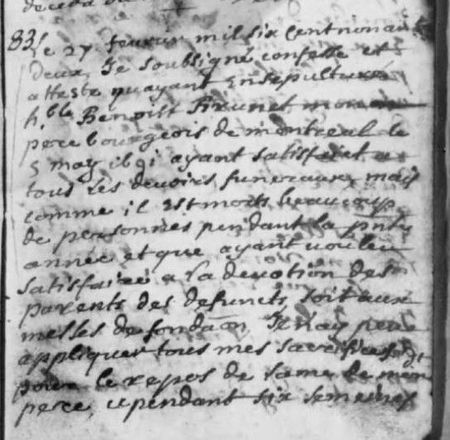 deceda
83 Le 27 fevrier mil six cent nonante
deux Je soubsigné confesse et
atteste quayant Insepulturé
h.ble Benoist Brunet mon
pere bourgeois de montreal le
5 may 1691 ayant satisfaict a
tous les devoirs funeraux mais
comme il est morts beaucoup
de personnes pendant la pnte
année et que ayant vouleu
satisfaire a la devotion des
parents des defuncts soit aux
messes de fondaon Je nay peu
appliquer tous mes sacrifices
pour le repos de lame de mon dt
pere, cependant six semaines